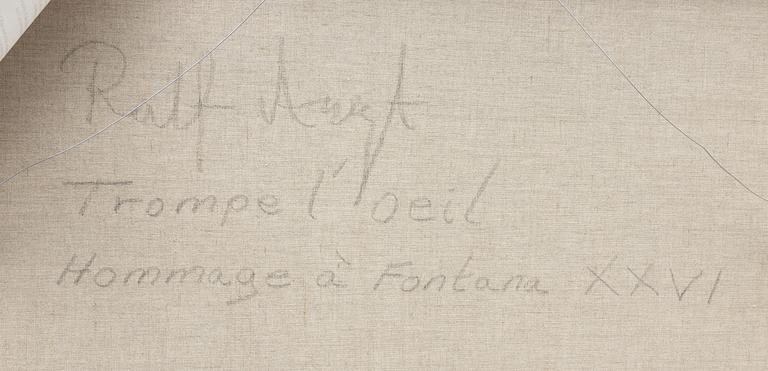 Ralf Arzt
Trompe l'oeil
Hommage à Fontana XXVI